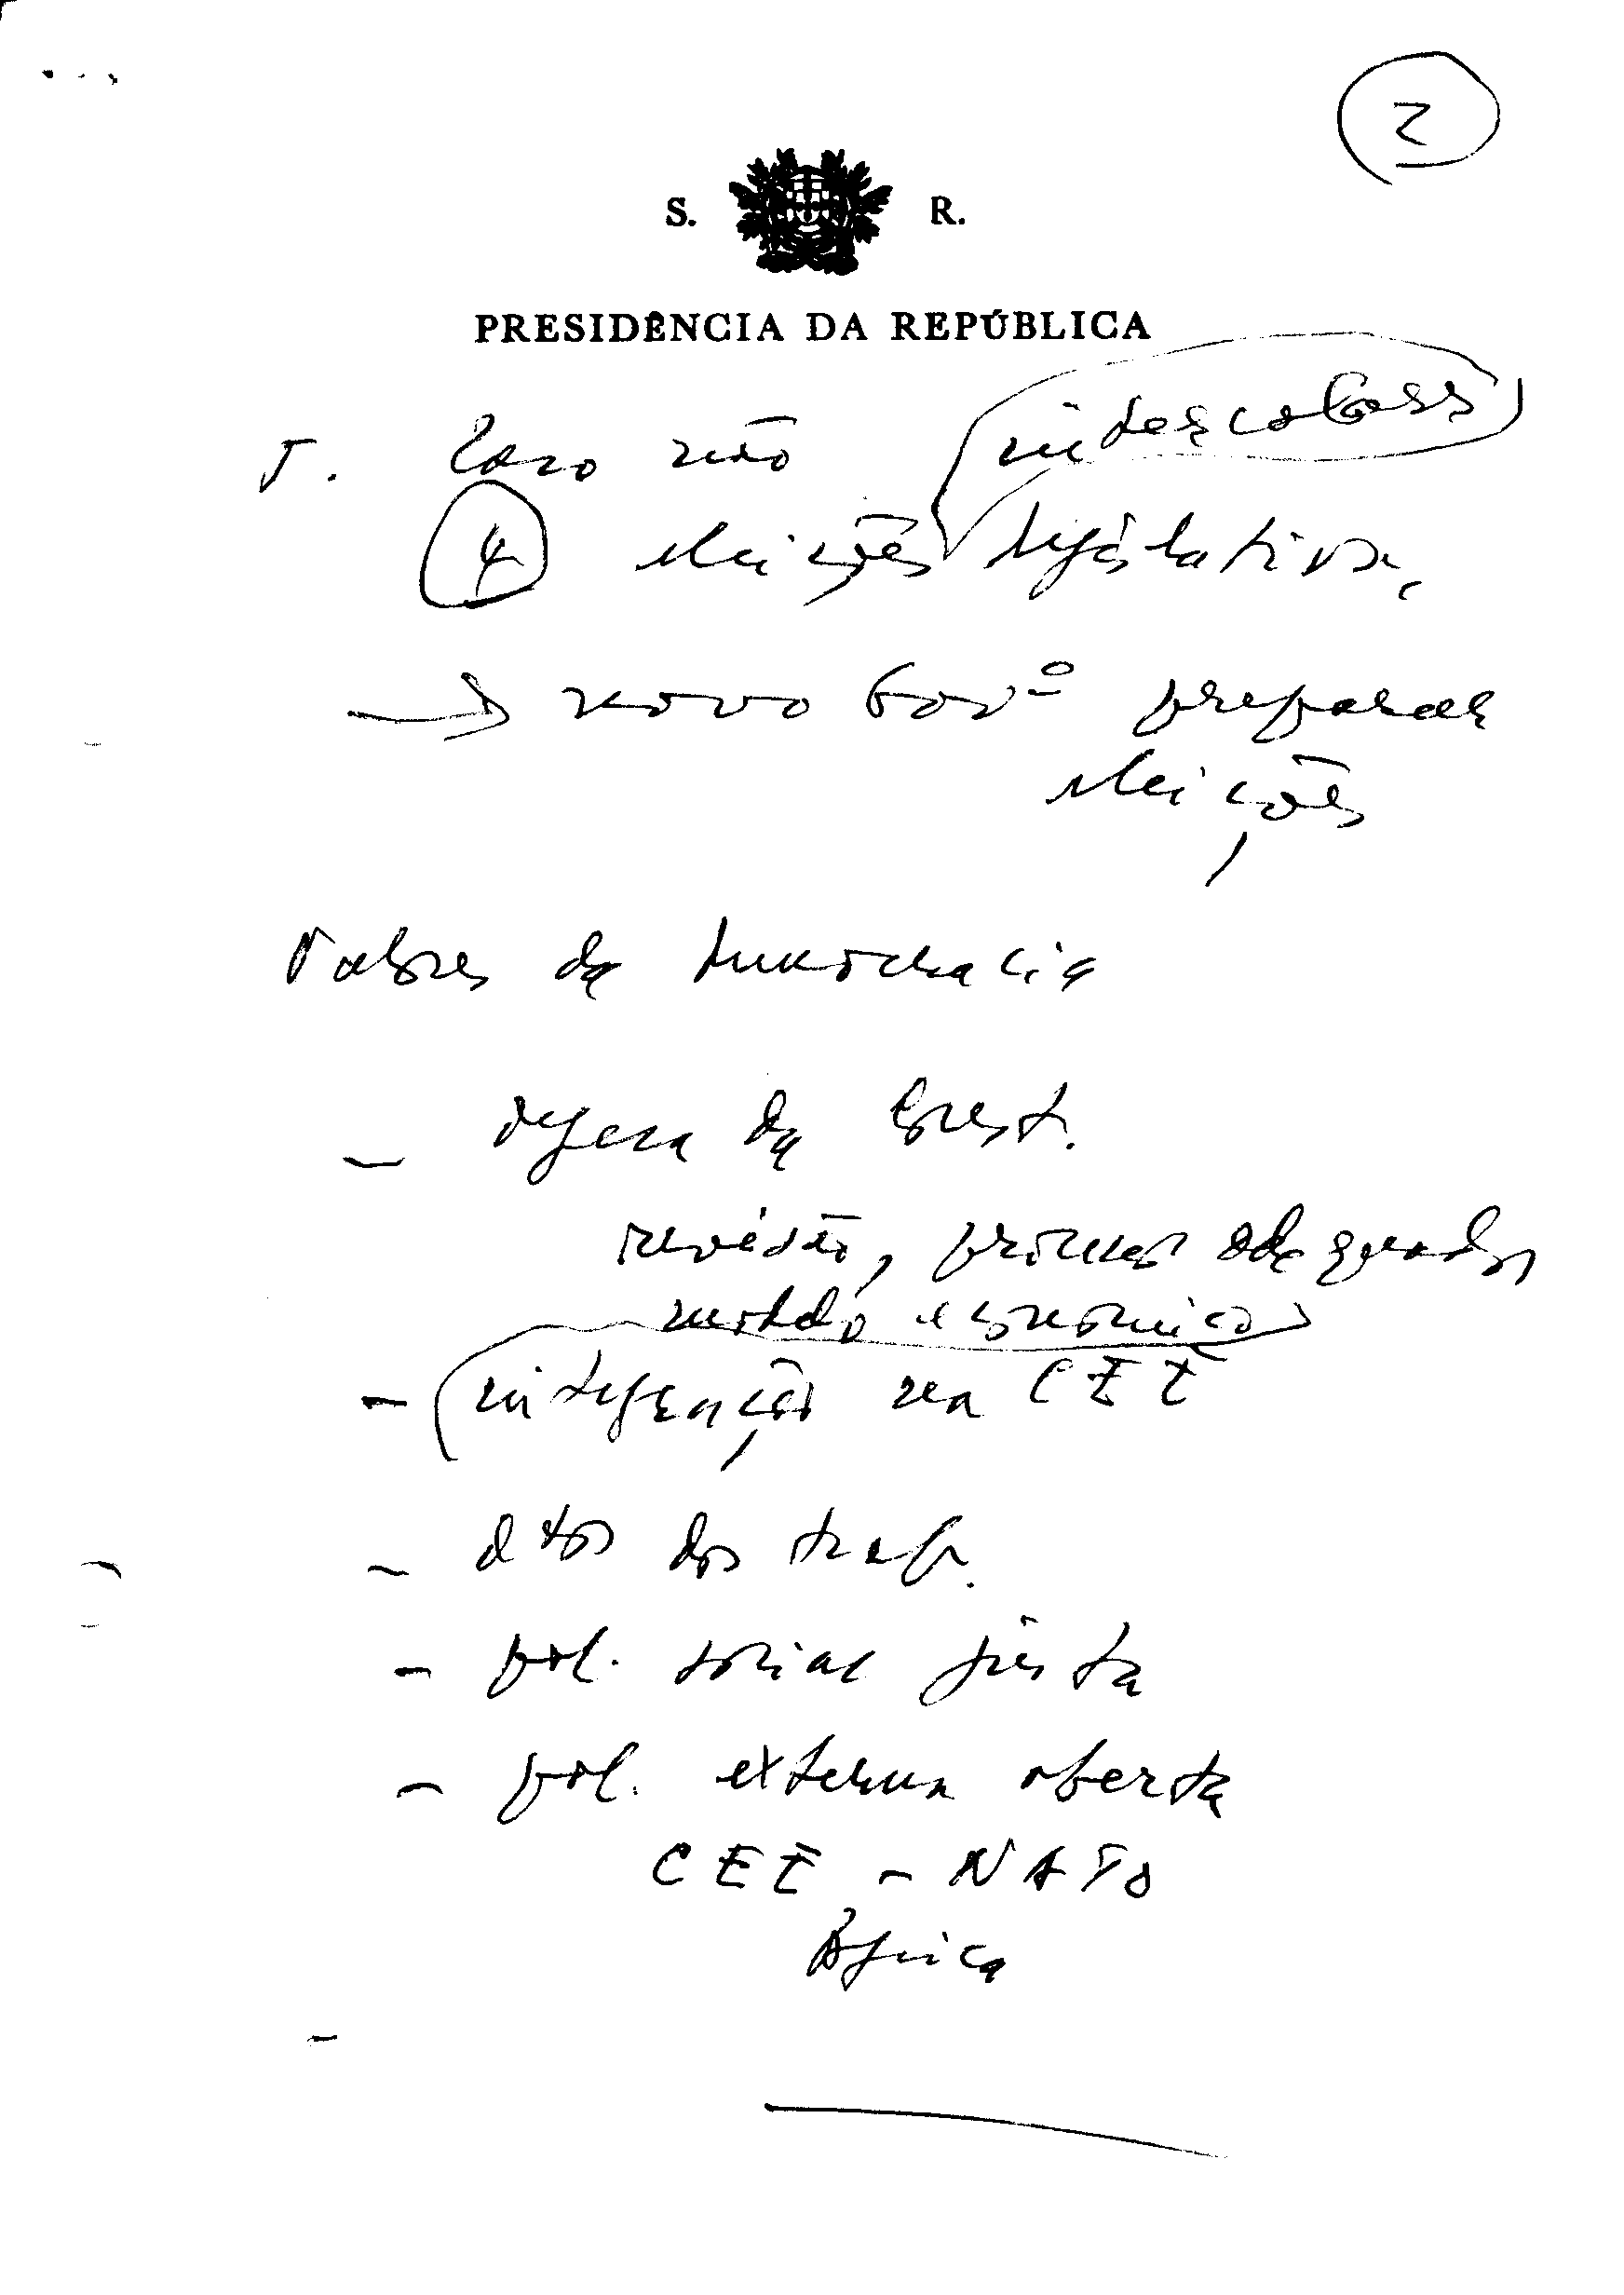 2
S. R.
PRESIDÊNCIA DA REPÚBLICA
5. Caso não
4 eleições legislativas,
→ novo Govº preparar
eleições
Valores da democracia
- defesa da Const.
revisão, processo adequado,
modelo económico
- integração na CEE
- dtos dos trab.
- pol. social justa
- pol. externa aberta
CEE - NATO
África
-